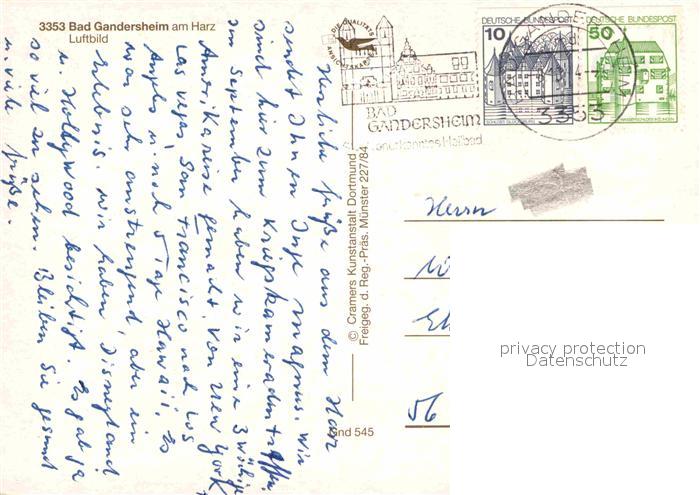 3353 Bad Gandersheim am Harz
Luftbild
Herzliche Grüße aus dem Harz
sendet Ihnen Inge Magnus. Wir
sind hier zum Kriegskameradentreffen.
Im September haben wir eine 3 wöchige
Amerikareise gemacht. Von New York
Las Vegas, San Francisco nach Los
Angeles u. noch 5 Tage Hawaii. Es
war sehr anstrengend, aber ein
Erlebnis wir haben Disneyland
u. Hollywood besichtigt. Es gab ja
so viel zu sehen. Bleiben Sie gesund
u. viele Grüße.
© Cramers Kunstanstalt Dortmund
Freigeg. d. Reg.-Präs. Münster 227/84
Gnd 545
DIE QUALITÄTS
ANSICHTSKARTE
BAD
GANDERSHEIM
anerkanntes Heilbad
10 DEUTSCHE BUNDESPOST
50 DEUTSCHE BUNDESPOST
3353
Herrn
56
privacy protection
Datenschutz